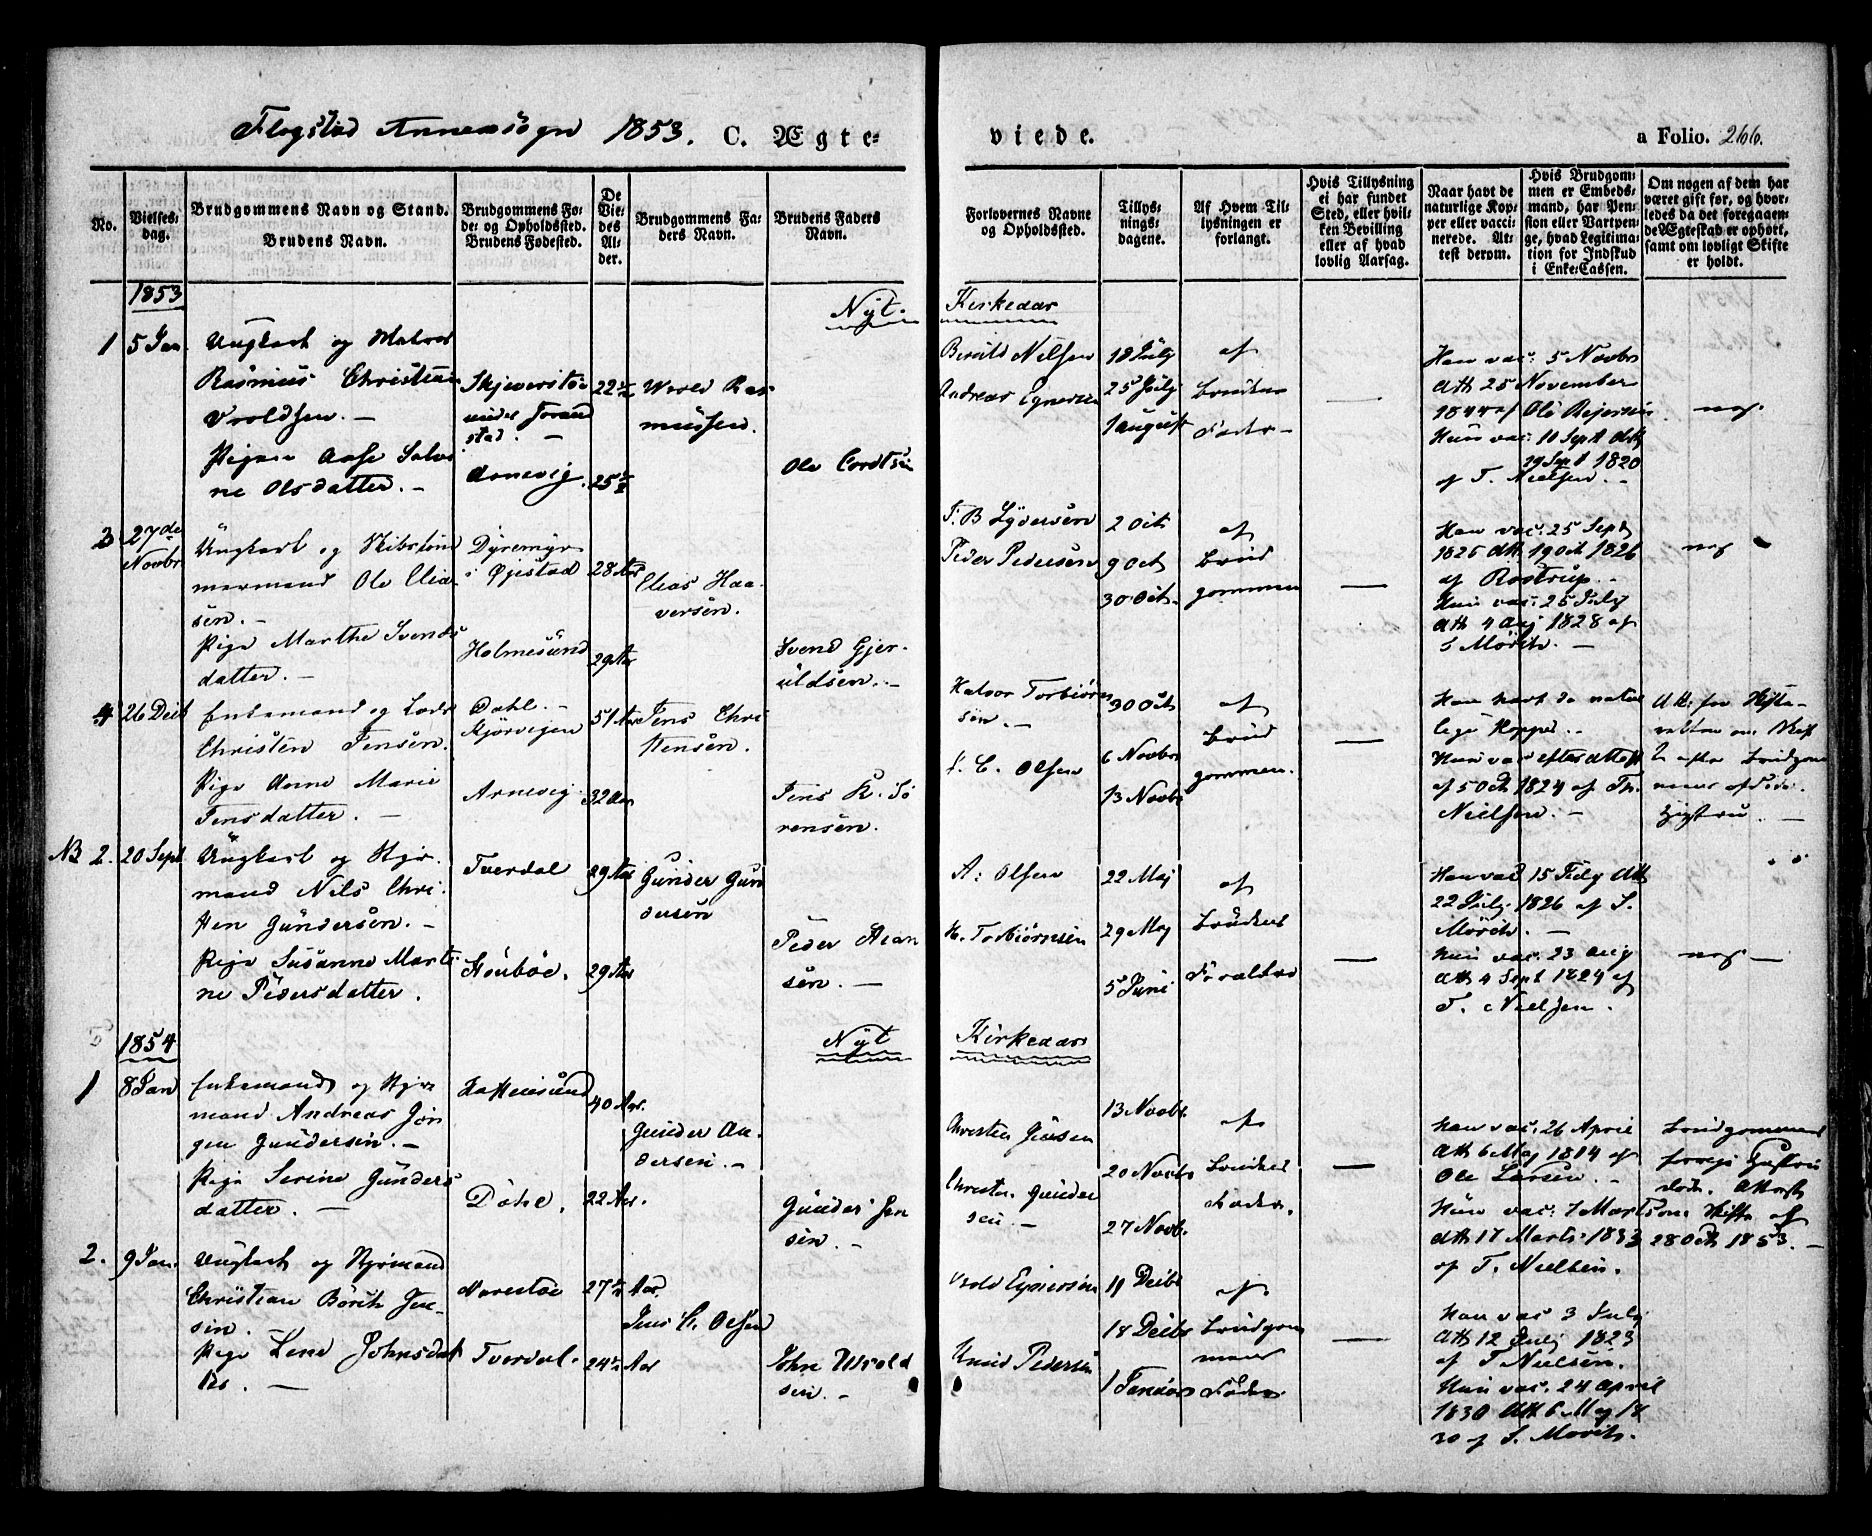 Flogstad Annexsogn 1853. C. Ægte-
viede.
a Folio. 266.
No.
Vielses-
dag.
Brudgommens Navn og Stand.
Brudens Navn.
Brudgommens Fø-
de- og Opholdssted.
Brudens Fødested.
De
Vie-
des
Al-
der.
Brudgommens Fa-
ders Navn.
Brudens Faders
Navn.
Forlovernes Navne
og Opholdssted.
Tillys-
nings-
dagene.
Af Hvem Til-
lysningen er
forlangt.
Hvis Tillysning
ei har fundet
Sted, eller hvil-
ken Bevilling
eller af hvad
lovlig Aarsag.
Naar havt de
naturlige Kop-
per eller vacci-
nerede. At-
test derom.
Hvis Brudgom-
men er Embeds-
mand, har Pen-
sion eller Vartpen-
ge, hvad Legitima-
tion for Indskud
i Enke-Cassen.
Om nogen af dem har
været gift før, og hvor-
ledes da det foregaaen-
de Ægteskab er ophørt,
samt om lovligt Skifte
er holdt.
1853
Nyt. Kirkeaar
1
5 Jan.
Ungkarl og Matros
Rasmus Christian
Vroldsen. —
Pigen Aase Salvi
ne Olsdatter. —
Skjeverstøe
under
stad. —
Arnevig.
22½
25½
Wrold Ras
mussen.
Ole Cordtsen
Berult Nilsen
Andreas Egnersen
18 July
25 July
1 August
af
Brudens
Fader —
—
Han vac: 5 Novbr
Att 25 November
1844 af Ole Reiersen
Hun vac: 10 Sept Att
29 Sept 1820
af T. Nielsen. —
nej.
3
27de
Novbr
Ungkarl og Skibstøm
mermand Ole Elia
sen. —
Pige Marthe Svends
datter. —
Dyremyr
i Øjestad
Holmesund
28 Aar
29 Aar
Elias Haa-
versen.
Svend Gjer-
uldsen. —
T. B Lydersen
Peder Pedersen
2 Oct
9 Oct
30 Oct.
af
Brud
gommen
—
Han vac: 25 Sept
1825 Att. 19 Oct 1826
af Rostrup. —
Hun vac: 25 July
Att 4 Aug 1828 af
S Mørch. —
nej
4
26 Decb
Enkemand og Lods
Christen Jensen.
Pige Anne Marie
Jensdatter. —
Dahl. —
Kjørvigen
Arnevig.
51 Aar
32 Aar
Jens Chri
stensen.
Jens K. Sø
rensen.
Halvor Torbiørn
sen. —
J. C. Olsen
30 Oct
6 Novbr
13 Novbr
af
Brud
gommen.
—
Han havt de natur
lige Kopper. —
Hun vac efter Attest
af 5 Oct 1824 af Th.
Nielsen. —
Att. fra Skifte-
retten om Skif
t efter Brudgom
mens afdøde
Hustru. —
NB 2.
20 Sept
Ungkarl og Styr-
mand Nils Chri-
sten Gundersen. —
Pige Susanne Marti
ne Pedersdatter.
Tverdal
Stoubøe.
29 Aar
29 Aar
Gunder Gun
dersen
Peder Han
sen. —
A: Olsen
H. Torbiørnsen
22 Maj
29 Maj
5 Juni
af
Brudens
Forældre
—
Han vac 15 July Att
22 July 1826 af S.
Mörch. —
Hun vac: 23 Aug
Att 4 Sept 1824 af
T. Nielsen.
nej —
1854
Nyt Kirkeaar
1
8 Jan
Enkemand og Styr
mand Andreas Jør
gen Gundersen. —
Pige Serine Gunders
datter. —
Hattesund
Dahl.
40 Aar.
22 Aar.
Gunder An-
dersen. —
Gunder Jen
sen. —
Christen Jensen
Christen Gunder
sen. —
13 Novbr
20 Novbr
27 Novb.
af
Brudens
Fader.
—
Han vac: 26 April
Att 6 Maj 1814 af
Ole Larsen. —
Hun vac: 7 Marts
Att 17 Marts 1833
af T. Nielsen.
Brudgommens
forrige Hustru
død. Attest
om Skifte af
28 Oct 1853. —
2.
9 Jan.
Ungkarl og Styrmand
Christian Børith Jen-
sen. —
Pige Lene Johnsdat
ter. —
Narestøe
Tverdal.
27½ Aar
24½ Aar
Jens C. Olsen
John Wrold
sen. —
Vrold Egnersen
Knud Pedersen
11 Decbr
18 Decbr
1 Januar
af
Brudgom
mens
Fader
—
Han vac 3 July
Att 12 July 1823
af T Nielsen.
Hun vac. 24 April
1830 Att 6 Maj 18
30 af S. Mørch.